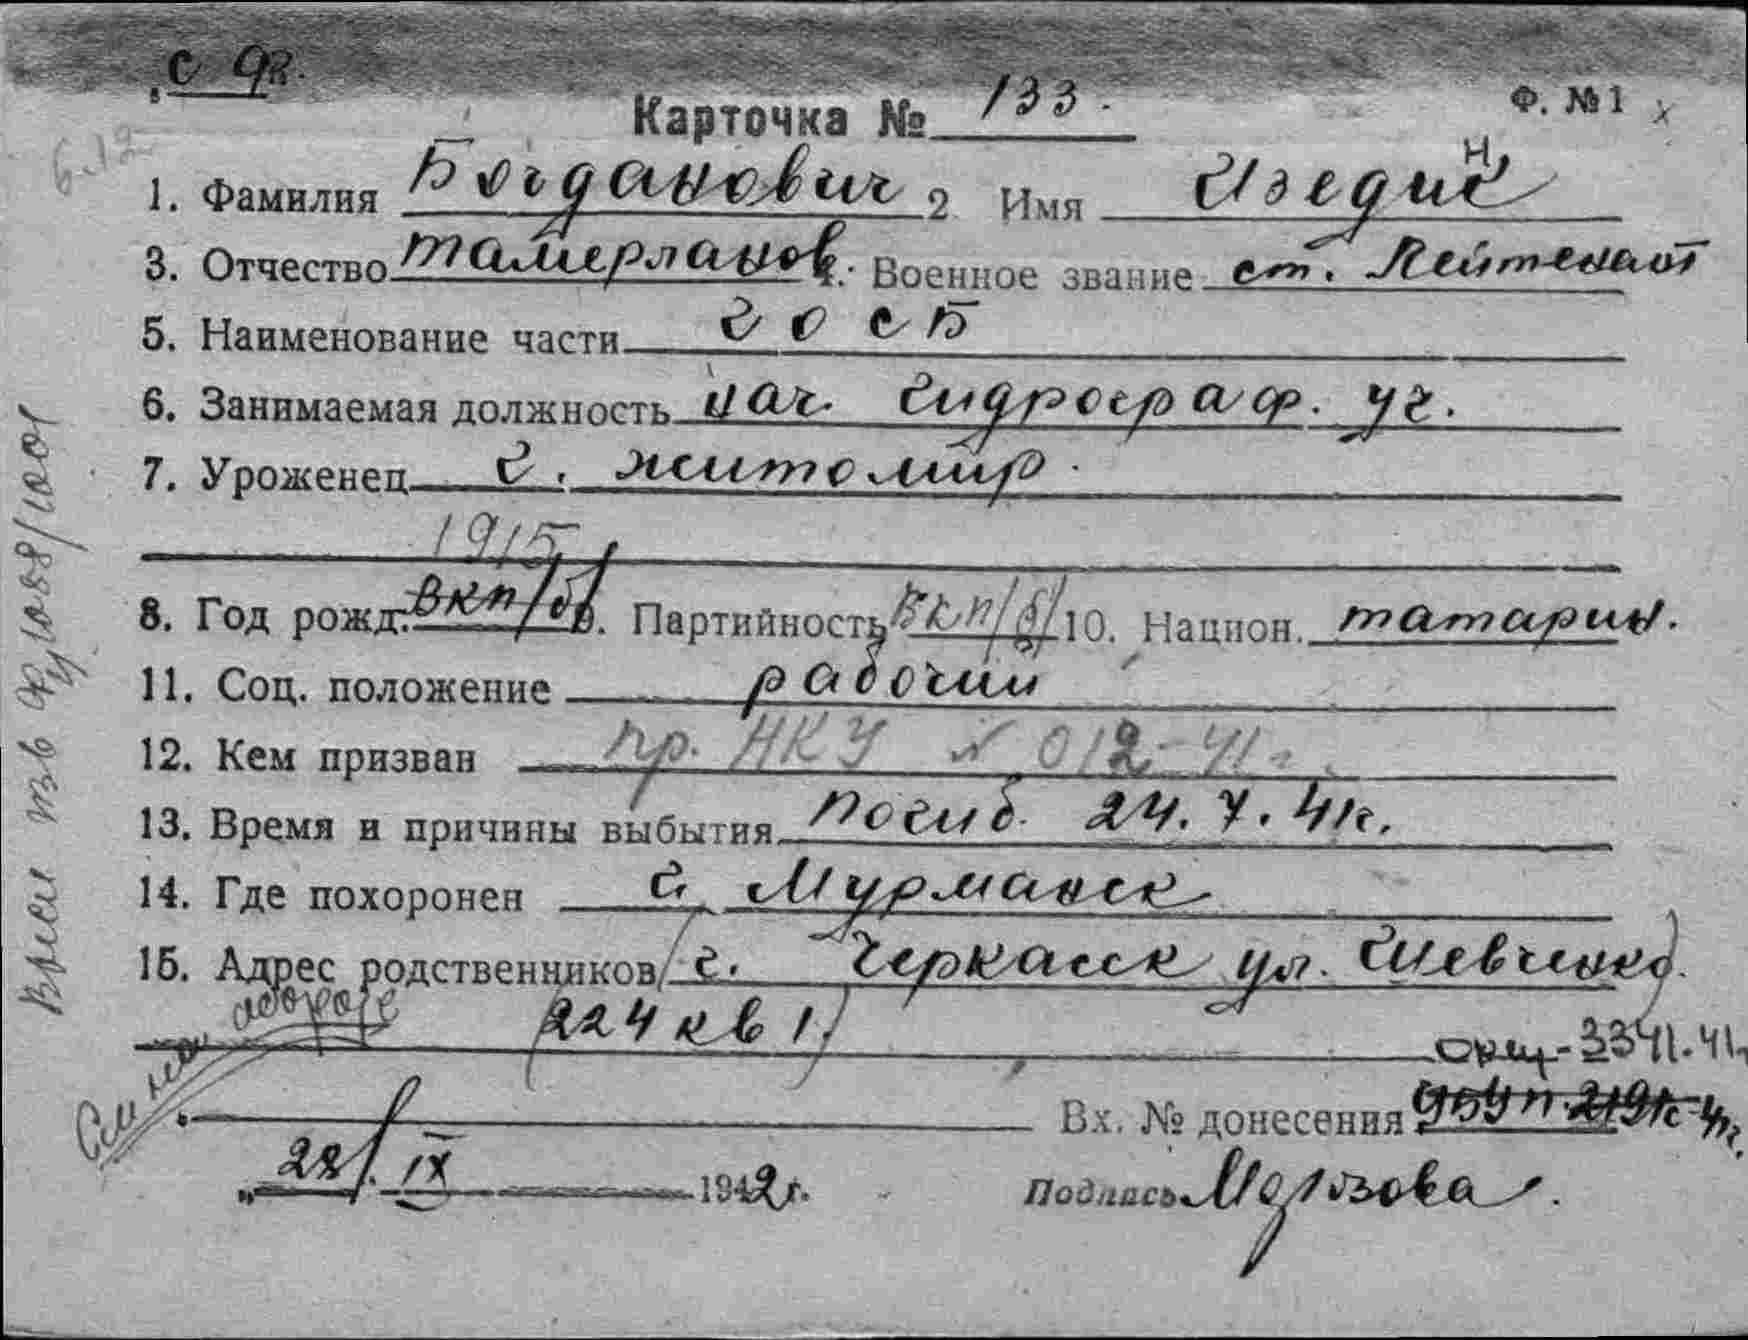 с 92.
Карточка № 133.
Ф. № 1 х
6.12
1. Фамилия Богданович 2 Имя Изедин
3. Отчество Тамерланов. 4. Военное звание ст. Лейтенант
5. Наименование части ГО СБ
6. Занимаемая должность нач. гидрограф. уч.
7. Уроженец г. Житомир.
1915
8. Год рожд. ВКП/б/ 9. Партийность ВКП/б/ 10. Национ. татарин.
11. Соц. положение рабочий
12. Кем призван пр. НКУ № 012-41г.
13. Время и причины выбытия погиб. 24.7.41г.
14. Где похоронен г. Мурманск
15. Адрес родственников г. Черкасск ул. Шевченко
224 кв 1.
См. на обороте
3341.41
Вх. № донесения
„28". IX 1942г.
Подпись